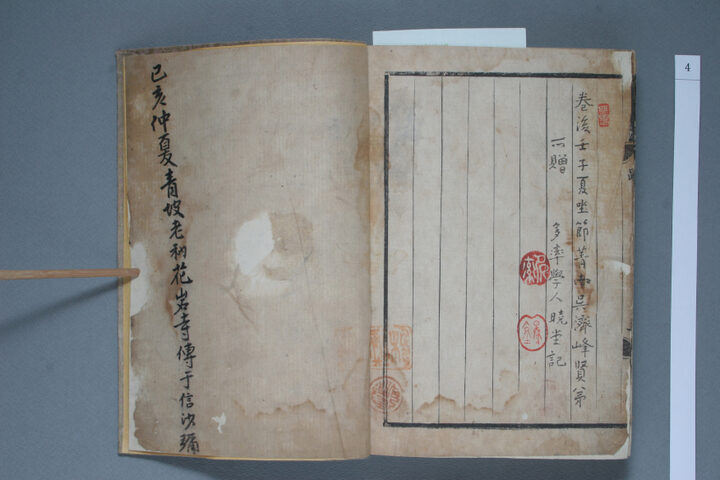 卷後壬子夏坐節菁申吳濟峰賢弟
所贈 多率學人曉堂記
己亥仲夏青坡老衲花岩寺傳于信沙彌
4